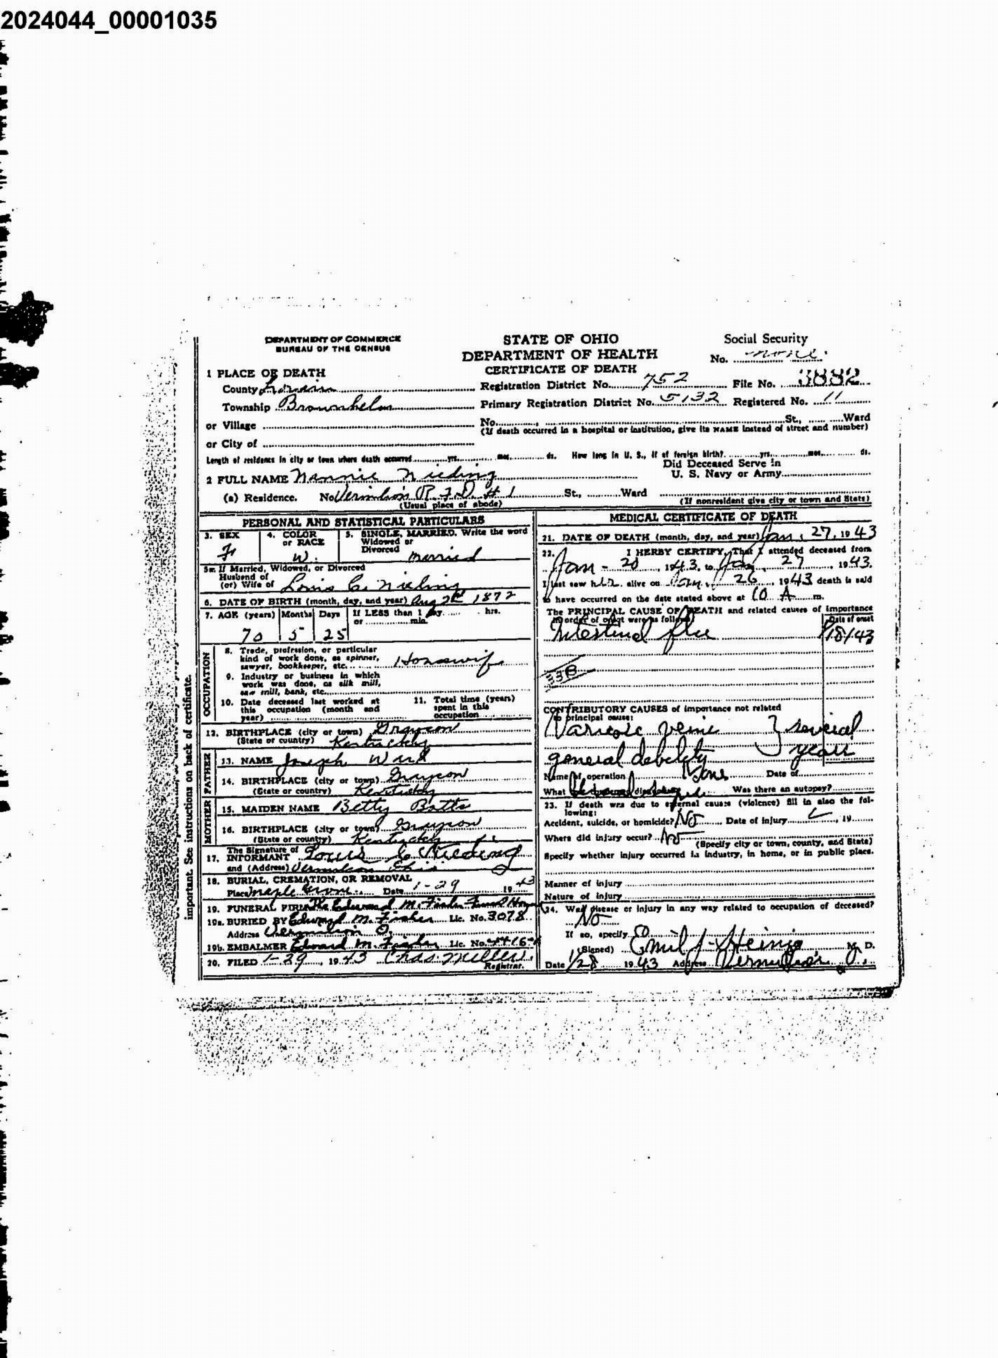 2024044_00001035
DEPARTMENT OF COMMERCE
BUREAU OF THE CENSUS
STATE OF OHIO
DEPARTMENT OF HEALTH
CERTIFICATE OF DEATH
Social Security
No. none.
1 PLACE OF DEATH
County Lorain
Township Brownhelm
or Village
or City of
Registration District No. 752 File No. 3882
Primary Registration District No. 5132 Registered No. 11
No. St., Ward
(If death occurred in a hospital or institution, give its NAME instead of street and number)
Length of residence in city or town where death occurred yrs. mos. ds. How long in U. S., if of foreign birth? yrs. mos. ds.
2 FULL NAME Nannie Nieding
Did Deceased Serve in
U. S. Navy or Army
(a) Residence. No. Vermilion R.F.D. #1 St., Ward
(Usual place of abode) (If nonresident give city or town and State)
PERSONAL AND STATISTICAL PARTICULARS
3. SEX 4. COLOR or RACE 5. SINGLE, MARRIED. Write the word Widowed or Divorced
F. W. married
5a. If Married, Widowed, or Divorced
Husband of
(or) Wife of Louis C. Nieding
6. DATE OF BIRTH (month, day, and year) Aug 2nd 1872
7. AGE (years) Months Days If LESS than 1 day hrs.
or min.
70 5 25
OCCUPATION
8. Trade, profession, or particular
kind of work done, as spinner,
sawyer, bookkeeper, etc. Housewife
9. Industry or business in which
work was done, as silk mill,
saw mill, bank, etc.
10. Date deceased last worked at
this occupation (month and
year)
11. Total time (years)
spent in this
occupation
12. BIRTHPLACE (city or town) Grayson
(State or country) Kentucky
FATHER
13. NAME Joseph
14. BIRTHPLACE (city or town) Grayson
(State or country) Kentucky
MOTHER
15. MAIDEN NAME Betty Batts
16. BIRTHPLACE (city or town) Grayson
(State or country) Kentucky
17. The Signature of
INFORMANT Louis C Nieding
and (Address) Vermilion Ohio
18. BURIAL, CREMATION, OR REMOVAL
Place Maple Grove Date 1-29 1943
19. FUNERAL FIRM The Edward M. Fisher Funeral Home
19a. BURIED BY Edward M. Fisher Lic. No. 3078
Address Vermilion O.
19b. EMBALMER Edward M. Fisher Lic. No.
20. FILED 1-29, 1943 Chas. Miller
Registrar.
important. See instructions on back of certificate.
MEDICAL CERTIFICATE OF DEATH
21. DATE OF DEATH (month, day, and year) Jan. 27, 1943
22. I HERBY CERTIFY, That I attended deceased from
Jan - 20, 1943, to Jan, 27 1943.
I last saw her alive on Jan, 26 1943 death is said
to have occurred on the date stated above at 10 A m.
The PRINCIPAL CAUSE OF DEATH and related causes of importance
in order of onset were as follows: Date of onset
Intestinal flu 1/18/43
33B
CONTRIBUTORY CAUSES of importance not related
to principal cause:
Varicose veins } several
general debelety years
Name of operation None Date of
What Was there an autopsy?
23. If death was due to external causes (violence) fill in also the following:
Accident, suicide, or homicide? No Date of injury 19
Where did injury occur? No
(Specify city or town, county, and State)
Specify whether injury occurred in industry, in home, or in public place.
Manner of injury
Nature of injury
24. Was disease or injury in any way related to occupation of deceased?
No
If so, specify
(Signed) Emil J. Heinig M. D.
Date 1/28 1943 Address Vermilion, O.